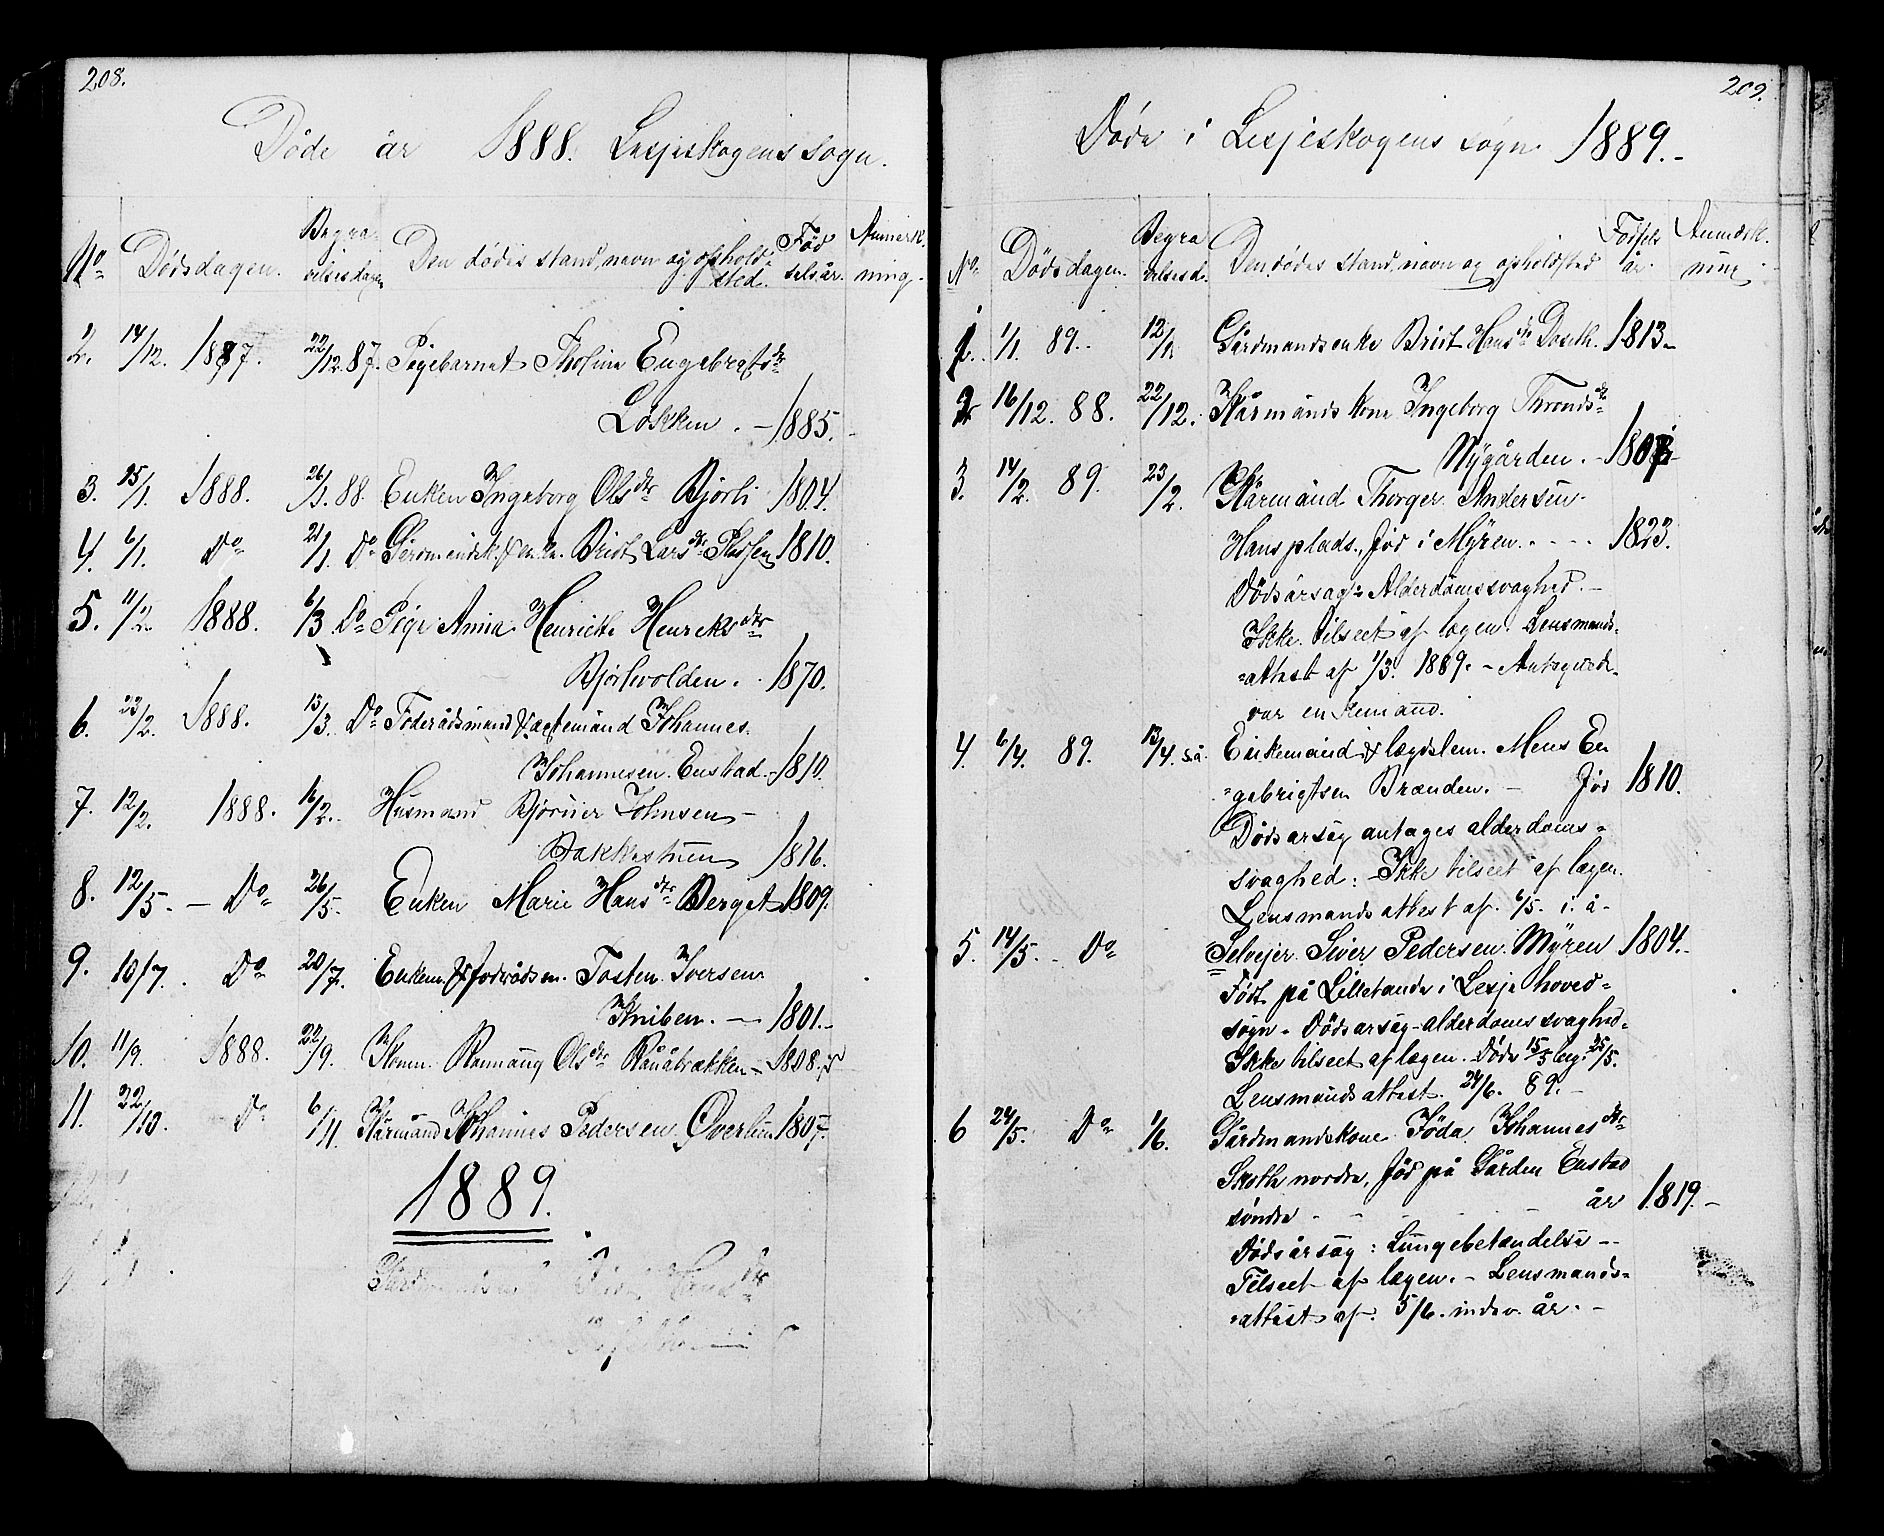 208.
Døde år 1888. Lesjeskogens sogn.
No Dødsdagen. Begravelsesdagen Den dødes stand, navn og opholdssted. Fødselsår. Anmerkning.
2. 14/12. 1887. 22/12. 87. Pigebarnet Tholine Engebretsdtr
Løkken. – 1885.
3. 15/1. 1888. 26/1. 88. Enken Ingeborg Olsdtr Bjørli 1804.
4. 6/1. Do 21/1. Do Brit Larsdtr 1810.
5. 11/2. 1888. 6/3 Do Pige Anna Henrikke Henreksdtr
Bjørlivolden. 1870.
6. 23/2. 1888. 13/3. Do Føderådsmand & ægtemand Johannes
Johannesen Enstad. 1810.
7. 12/2. 1888. 16/2. Husmand Bjørner Johnsen –
Bakkestuen 1816.
8. 12/5. – Do 26/5. Enken Marie Hansdtr Berget 1809.
9. 10/7. Do 20/7. Enkem. & foderådsm. Tosten Iversen
Kniben. – 1801. –
10. 11/9. 1888. 22/9. Konen Rannaug Olsdtr Rånåbrækken – 1808.
11. 22/10. Do 6/11. Kårmand Johannes Pedersen Øverlien 1807.
1889.
209.
Døde i Lesjeskogens sogn 1889. –
No Dødsdagen. Begravelsesd. Den dødes stand, navn og opholdsted Fødselsår. Anmærkning
1. 1/1. 89. 12/1 Gårdmandsenke Brit Hansdtr Doseth. 1813 –
2 16/12. 88. 22/12. Kårmandskone Ingeborg Throndsdtr
Nygården. –
3. 14/2. 89. 23/2. Kårmand Thorger Andersen
Hansplads., fød i Mÿren. . . . . 1823.
Dødsårsag: Alderdomssvaghed. –
Ikke tilseet af lægen. Lensmands-
-attest af 1/3. 1889. –
var en
4. 6/4. 89. 13/4. s.å. Enkemand & lægdslem. Mons En
-gebrigtsen Brænden. – fød 1810.
Dødsarsag antages alderdoms-
svaghed: – Ikke tilseet af lægen.
Lensmands attest af. 6/5. i. å –
5. 14/5. – Do Selvejer Siver Pedersen Mÿren 1804. –
Født på i Lesje hoved-
sogn. Dødsarsag – alderdomssvaghed.
Ikke tilseet af lægen. Døde 15/5 beg. 25/5.
Lensmands attest. 24/6. 89. –
6 24/5. Do 1/6. Gårdmandskone Føda Johannesdtr
Skothe nordre, fød på Gården Enstad
søndre – – – – år 1819. –
Dødsårsag: Lungebetændelse –
Tilseet af lægen. – Lensmands-
-attest af. 5/6. indev. år. –